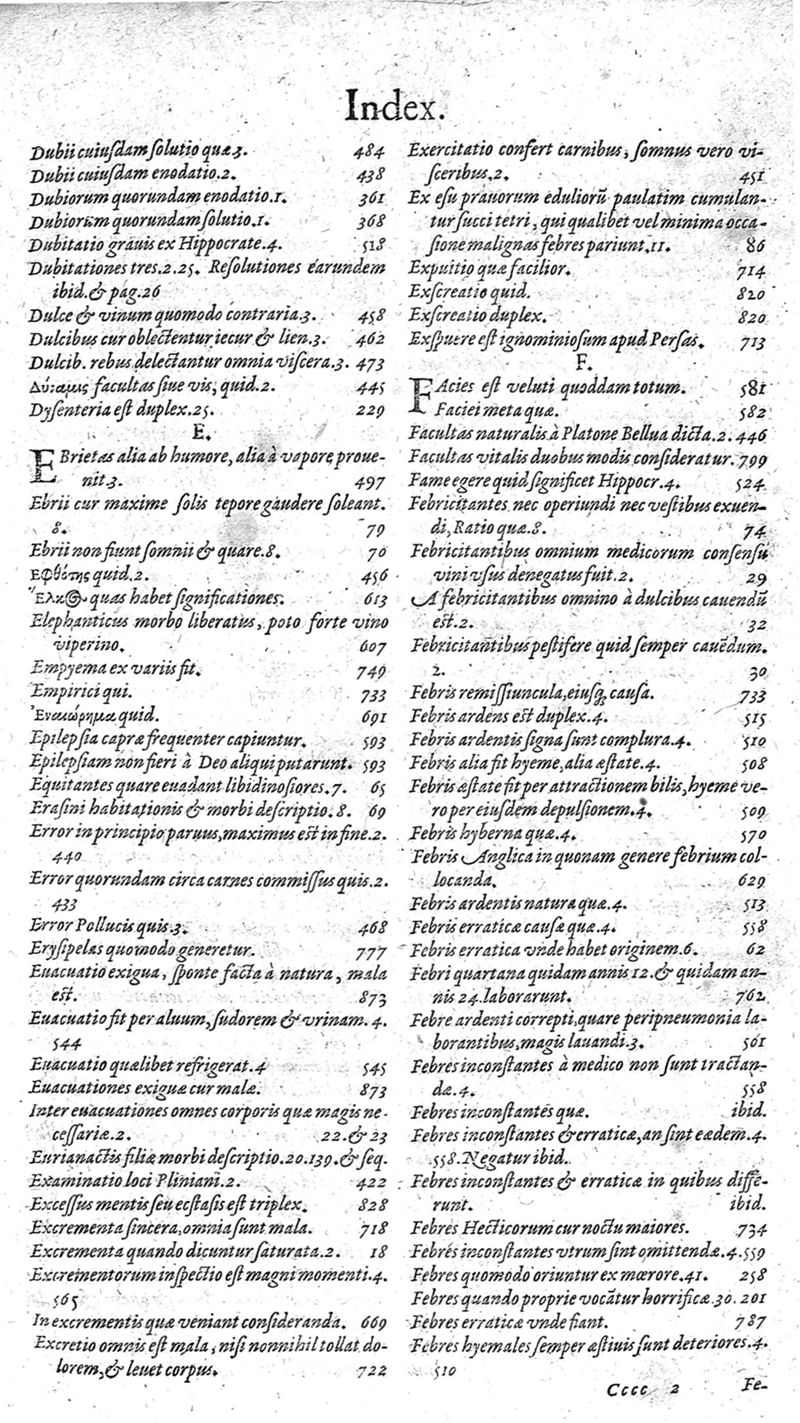 Index.
Dubii cuiusdam solutio quæ 3. 484
Dubii cuiusdam enodatio.2. 438
Dubiorum quorundam enodatio.1. 361
Dubiorum quorundam solutio.1. 368
Dubitatio grauis ex Hippocrate.4. 518
Dubitationes tres.2.25. Resolutiones earundem
ibid.& pag.26
Dulce & vinum quomodo contraria.3. 458
Dulcibus cur oblectentur iecur & lien.3. 462
Dulcib. rebus delectantur omnia viscera.3. 473
Δύναμις facultas siue vis, quid.2. 445
Dysenteria est duplex.25. 229
E.
EBrietas alia ab humore, alia à vapore proue-
nit 3. 497
Ebrii cur maxime solis tepore gaudere soleant.
8. 79
Ebrii non fiunt somnii & quare.8. 70
Εφθότης quid.2. 456
Ἕλκος quas habet significationes. 613
Elephanticus morbo liberatus, poto forte vino
viperino. 607
Empyema ex variis fit. 749
Empirici qui. 733
Ἐναιώρημα quid. 691
Epilepsia capræ frequenter capiuntur. 593
Epilepsiam non fieri à Deo aliqui putarunt. 593
Equitantes quare euadant libidinosiores.7. 65
Erasini habitationis & morbi descriptio.8. 69
Error in principio paruus, maximus est in fine.2.
440
Error quorundam circa carnes commissus quis.2.
433
Error Pollucis quis.3. 468
Erysipelas quomodo generetur. 777
Euacuatio exigua, sponte facta à natura, mala
est. 873
Euacuatio fit per aluum, sudorem & vrinam. 4.
544
Euacuatio quælibet refrigerat.4 545
Euacuationes exiguæ cur malæ. 873
Inter euacuationes omnes corporis quæ magis ne-
cessariæ.2. 22.& 23
Eurianactis filiæ morbi descriptio.20.139.& seq.
Examinatio loci Pliniani.2. 422
Excessus mentis seu ecstasis est triplex. 828
Excrementa sincera, omnia sunt mala. 718
Excrementa quando dicuntur saturata.2. 18
Excrementorum inspectio est magni momenti.4.
565
In excrementis quæ veniant consideranda. 669
Excretio omnis est mala, nisi nonnihil tollat do-
lorem, & leuet corpus. 722
Exercitatio confert carnibus, somnus vero vi-
sceribus.2. 451
Ex esu prauorum eduliorū paulatim cumulan-
tur succi tetri, qui qualibet vel minima occa-
sione malignas febres pariunt.11. 86
Expuitio quæ facilior. 714
Exscreatio quid. 820
Exscreatio duplex. 820
Exspuere est ignominiosum apud Persas. 713
F.
FAcies est veluti quoddam totum. 581
Faciei meta quæ. 582
Facultas naturalis à Platone Bellua dicta.2. 446
Facultas vitalis duobus modis consideratur. 799
Fame egere quid significet Hippocr.4. 524
Febricitantes nec operiundi nec vestibus exuen-
di, Ratio quæ.8. 74
Febricitantibus omnium medicorum consensu
vini vsus denegatus fuit.2. 29
A febricitantibus omnino à dulcibus cauendū
est.2. 32
Febricitantibus pestifere quid semper cauēdum.
2. 30
Febris remissiuncula, eiusq; causa. 733
Febris ardens est duplex.4. 515
Febris ardentis signa sunt complura.4. 510
Febris alia fit hyeme, alia æstate.4. 508
Febris æstate fit per attractionem bilis, hyeme ve-
ro per eiusdem depulsionem.4. 509
Febris hyberna quæ.4. 570
Febris Anglica in quonam genere febrium col-
locanda. 629
Febris ardentis natura quæ.4. 513
Febris erraticæ causa quæ.4. 558
Febris erratica vnde habet originem.6. 62
Febri quartana quidam annis 12. & quidam an-
nis 24. laborarunt. 762
Febre ardenti correpti, quare peripneumonia la-
borantibus, magis lauandi.3. 501
Febres inconstantes à medico non sunt tractan-
dæ.4. 558
Febres inconstantes quæ. ibid.
Febres inconstantes & erraticæ, an sint eædem.4.
558. Negatur ibid.
Febres inconstantes & erraticæ in quibus diffe-
runt. ibid.
Febres Hecticorum cur noctu maiores. 734
Febres inconstantes vtrum sint omittendæ.4.559
Febres quomodo oriuntur ex mœrore.41. 258
Febres quando proprie vocātur horrificæ.30. 201
Febres erraticæ vnde fiant. 787
Febres hyemales semper æstiuis sunt deteriores.4.
510
Cccc 2 Fe-